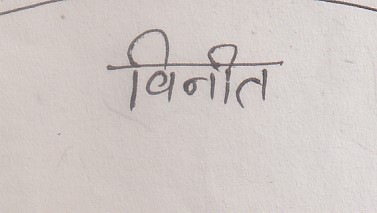 विनीत